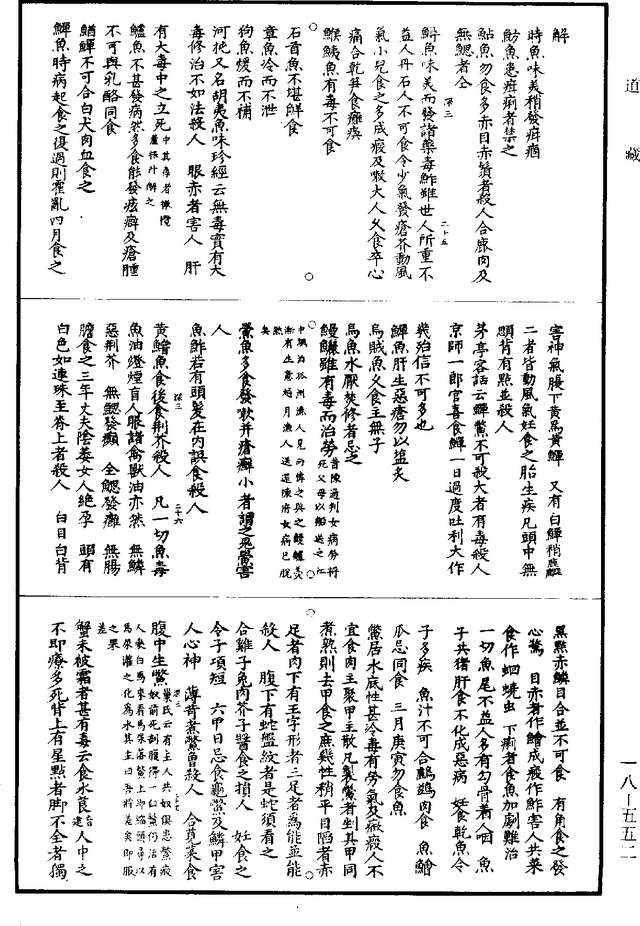 道藏
解
時魚味美稍發疳痼
魴魚患疳痢者禁之
鮎魚勿食多赤目赤鬚者殺人合鹿肉及
無鰓者仝
鱘魚味美而發諸藥毒鮓雖世人所重不
益人丹石人不可食令少氣發瘡疥動風
氣小兒食之多成瘕及嗽大人久食卒心
痛合乾笋食癱瘓
鯸鮧魚有毒不可食
石首魚不堪鮮食
章魚冷而不泄
狗魚煖而不補
河㹠又名胡夷魚味珍經云無毒實有大
毒修治不如法殺人 眼赤者害人 肝
有大毒中之立死中其毒者橄欖蘆根汁解之
鱸魚不甚發病然多食能發痃癖及瘡腫
不可與乳酪同食
鰌鱓不可合白犬肉血食之
鱓魚時病起食之復過則霍亂四月食之
害神氣腹下黃爲黃鱓 又有白鱓稍麤
二者皆動風氣妊食之胎生疾凡頭中無
顋背有點並殺人
茅亭客話云鱓鱉不可殺大者有毒殺人
京師一郎官喜食鱓一日過度吐利大作
幾殆信不可多也
鱓魚肝生惡瘡勿以鹽炙
烏賊魚久食主無子
烏魚水厭焚修者忌之
鰻鱺雖有毒而治勞
鱟魚多食發嗽并瘡癬小者謂之鬼鱟害
人
魚鮓若有頭髮在內誤食殺人
黃鱨魚食後食荆芥殺人 凡一切魚毒
魚油燈煙盲人眼諸禽獸油亦然 無鱗
惡荆芥 無鰓發癲 全鰓發癰 無腸
膽食之三年丈夫陰萎女人絕孕 頭有
白色如連珠至脊上者殺人 白目白背
黑點赤鱗目合並不可食 有角食之發
心驚 目赤者作鱠成瘕作鮓害人共菜
食作蛔蟯虫 下痢者食魚加劇難治
一切魚尾不益人多有勾骨著人咽 魚
子共猪肝食不化成惡病 妊食乾魚令
子多疾 魚汁不可合鸕鷀肉食 魚鱠
瓜忌同食 三月庚寅勿食魚
鱉居水底性甚冷毒有勞氣及癥瘕人不
宜食肉主聚甲主散凡製鱉者剉其甲同
煮熟則去甲食之庶幾性稍平目陷者赤
足者肉下有王字形者三足者爲能並能
殺人 腹下有蛇盤紋者是蛇須看之
合雞子兔肉芥子醬食之損人 妊食之
令子項短 六甲日忌食龜鱉及鱗甲害
人心神 薄荷煮鱉曾殺人 合莧菜食
腹中生鱉
蟹未被霜者甚有毒云食水莨音建人中之
不即療多死背上有星點者脚不全者獨
深三 二十五
深三 二十六
一八—五五二